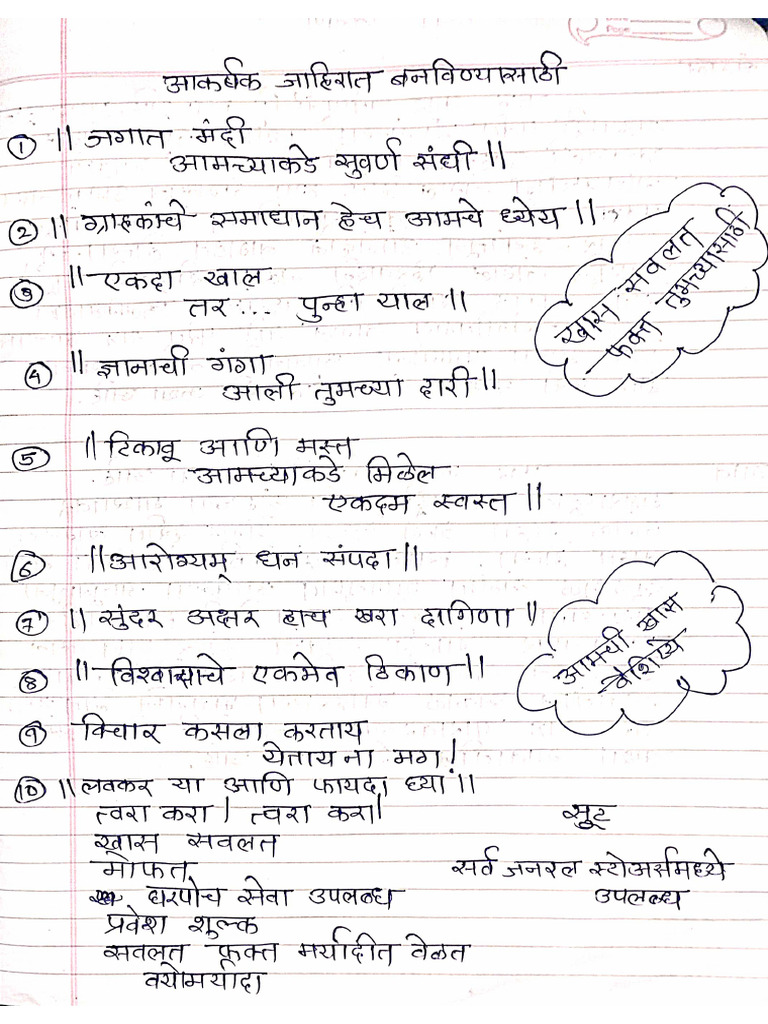 आकर्षक जाहिरात बनविण्यासाठी
① || जगात मंदी
आमच्याकडे सुवर्ण संधी ||
② || ग्राहकांचे समाधान हेच आमचे ध्येय ||
③ || एकदा खाल
तर ... पुन्हा याल ||
खास सवलत
फक्त तुमच्यासाठी
④ || ज्ञानाची गंगा
आली तुमच्या दारी ||
⑤ || टिकावू आणि मस्त
आमच्याकडे मिळेल
एकदम स्वस्त ||
⑥ || आरोग्यम् धन संपदा ||
⑦ || सुंदर अक्षर हाच खरा दागिणा ||
आमची खास
वैशिष्ये
⑧ || विश्वासाचे एकमेव ठिकाण ||
⑨ विचार कसला करताय
येताय ना मग !
⑩ || लवकर या आणि फायदा घ्या ||
त्वरा करा / त्वरा करा /
सुट
खास सवलत
मोफत
सर्व जनरल स्टोअर्समध्ये
उपलब्ध
घरपोच सेवा उपलब्ध
प्रवेश शुल्क
सवलत फक्त मर्यादीत वेळेत
वयोमर्यादा